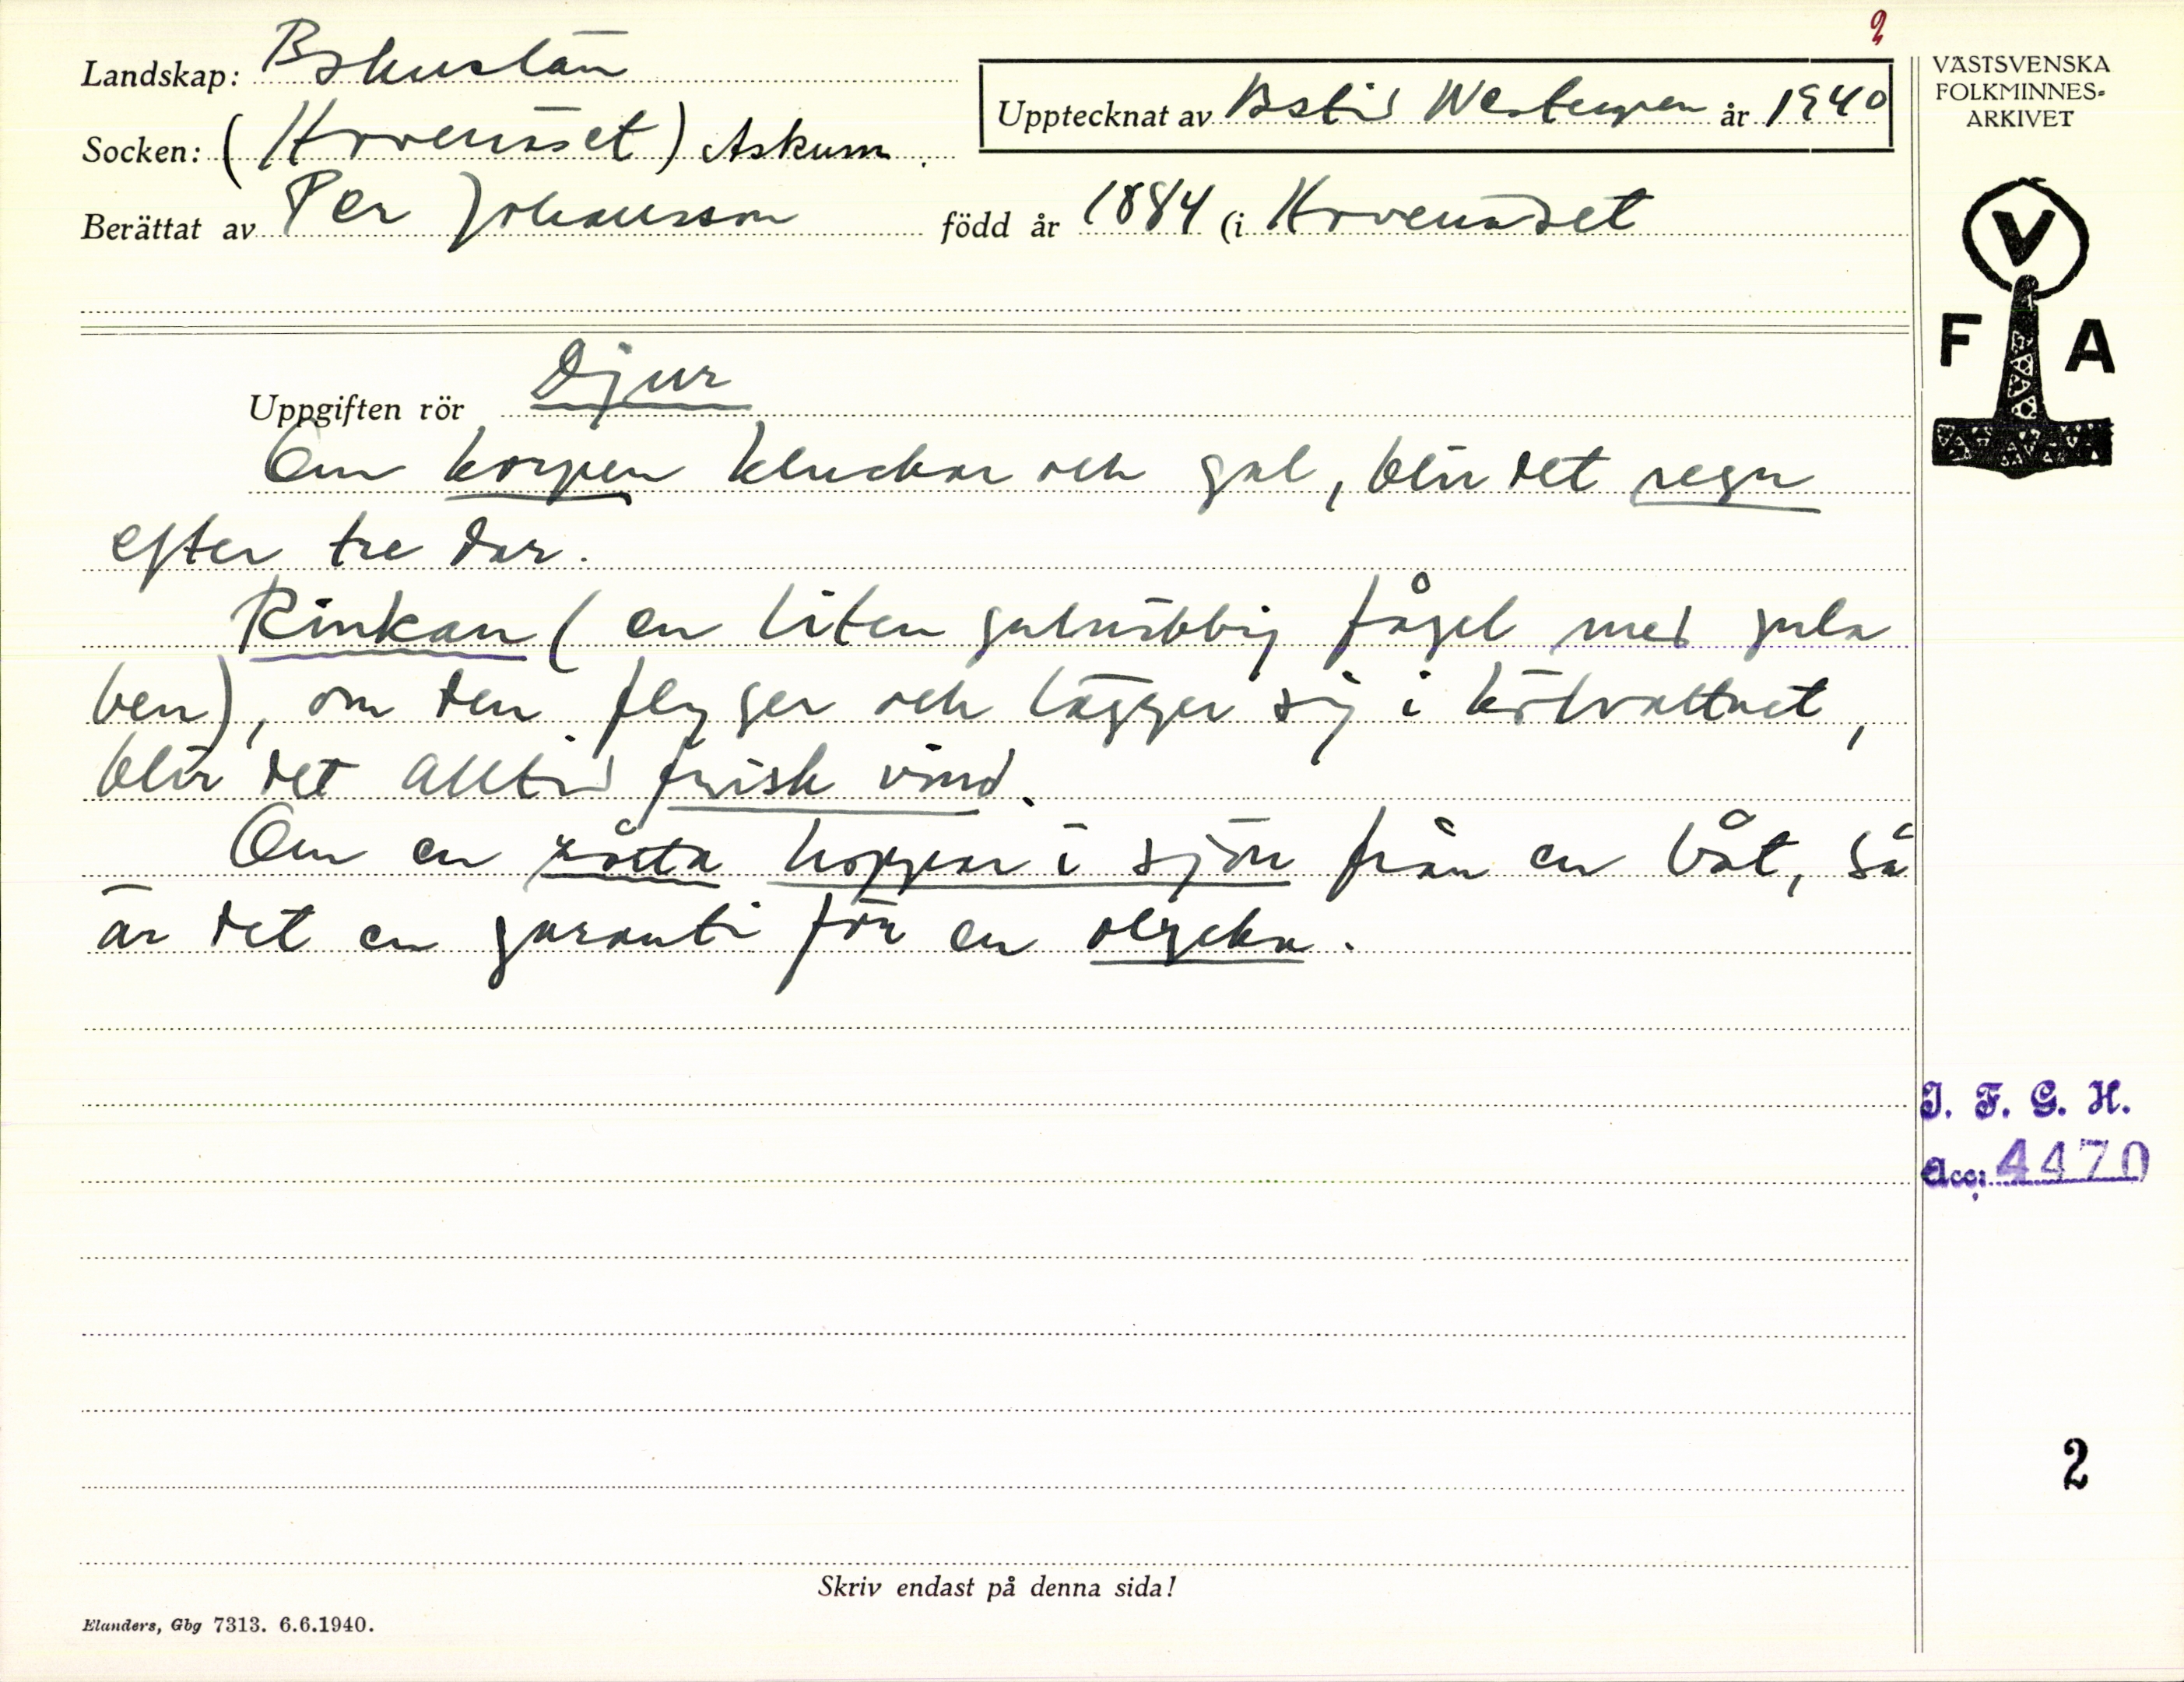 2
Landskap: Bohuslän
Socken: (Hovenäset) Askum.
Upptecknat av Astrid Westergren år 1940
Berättat av Per Johansson född år 1884 (i Hovenäset
VÄSTSVENSKA
FOLKMINNES-
ARKIVET
V
F A
Uppgiften rör Djur
Om korpen kluckar och gal, blir det regn
efter tre dar.
Rinkan (en liten gulnäbbig fågel med gula
ben), om den flyger och lägger sig i kölvattnet,
blir det alltid frisk vind.
Om en råtta hoppar i sjön från en båt, så
är det en garanti för en olycka.
I. F. G. H.
Acc: 4470
2
Skriv endast på denna sida!
Elanders, Gbg 7313. 6.6.1940.